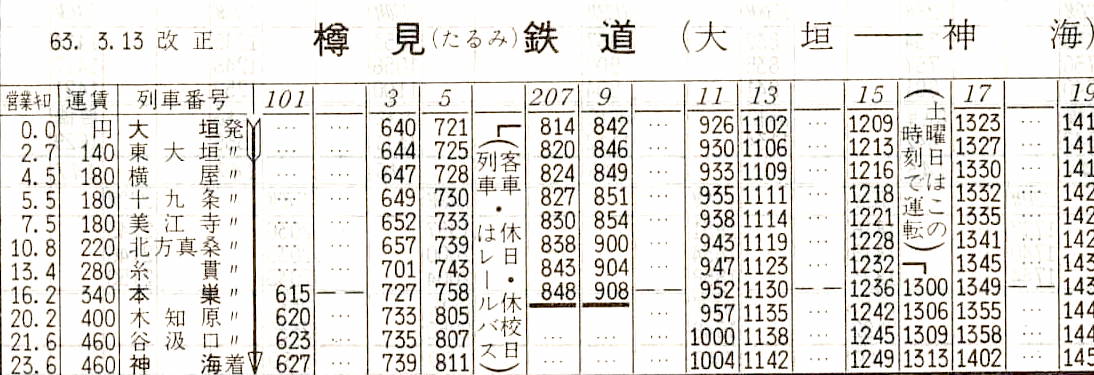 63. 3.13 改正 樽見(たるみ)鉄道(大垣——神海)
営業キロ 運賃 列車番号 101 3 5 207 9 11 13 15 17 19
0.0 円 大垣発 … … 640 721 814 842 … 926 1102 … 1209 1323 … 141
2.7 140 東大垣〃 … … 644 725 820 846 … 930 1106 … 1213 1327 … 141
4.5 180 横屋〃 … … 647 728 824 849 … 933 1109 … 1216 1330 … 141
5.5 180 十九条〃 … … 649 730 827 851 … 935 1111 … 1218 1332 … 142
7.5 180 美江寺〃 … … 652 733 830 854 … 938 1114 … 1221 1335 … 142
10.8 220 北方真桑〃 … … 657 739 838 900 … 943 1119 … 1228 1341 … 142
13.4 280 糸貫〃 … … 701 743 843 904 … 947 1123 … 1232 1345 … 143
16.2 340 本巣〃 615 727 758 848 908 952 1130 1236 1300 1349 143
20.2 400 木知原〃 620 … 733 805 … … … 957 1135 … 1242 1306 1355 … 144
21.6 460 谷汲口〃 623 … 735 807 … … … 1000 1138 … 1245 1309 1358 … 144
23.6 460 神海着 627 … 739 811 … … … 1004 1142 … 1249 1313 1402 … 145
(客車・休日・休校日
列車・はレールバス)
(土曜日はこの
時刻で運転)